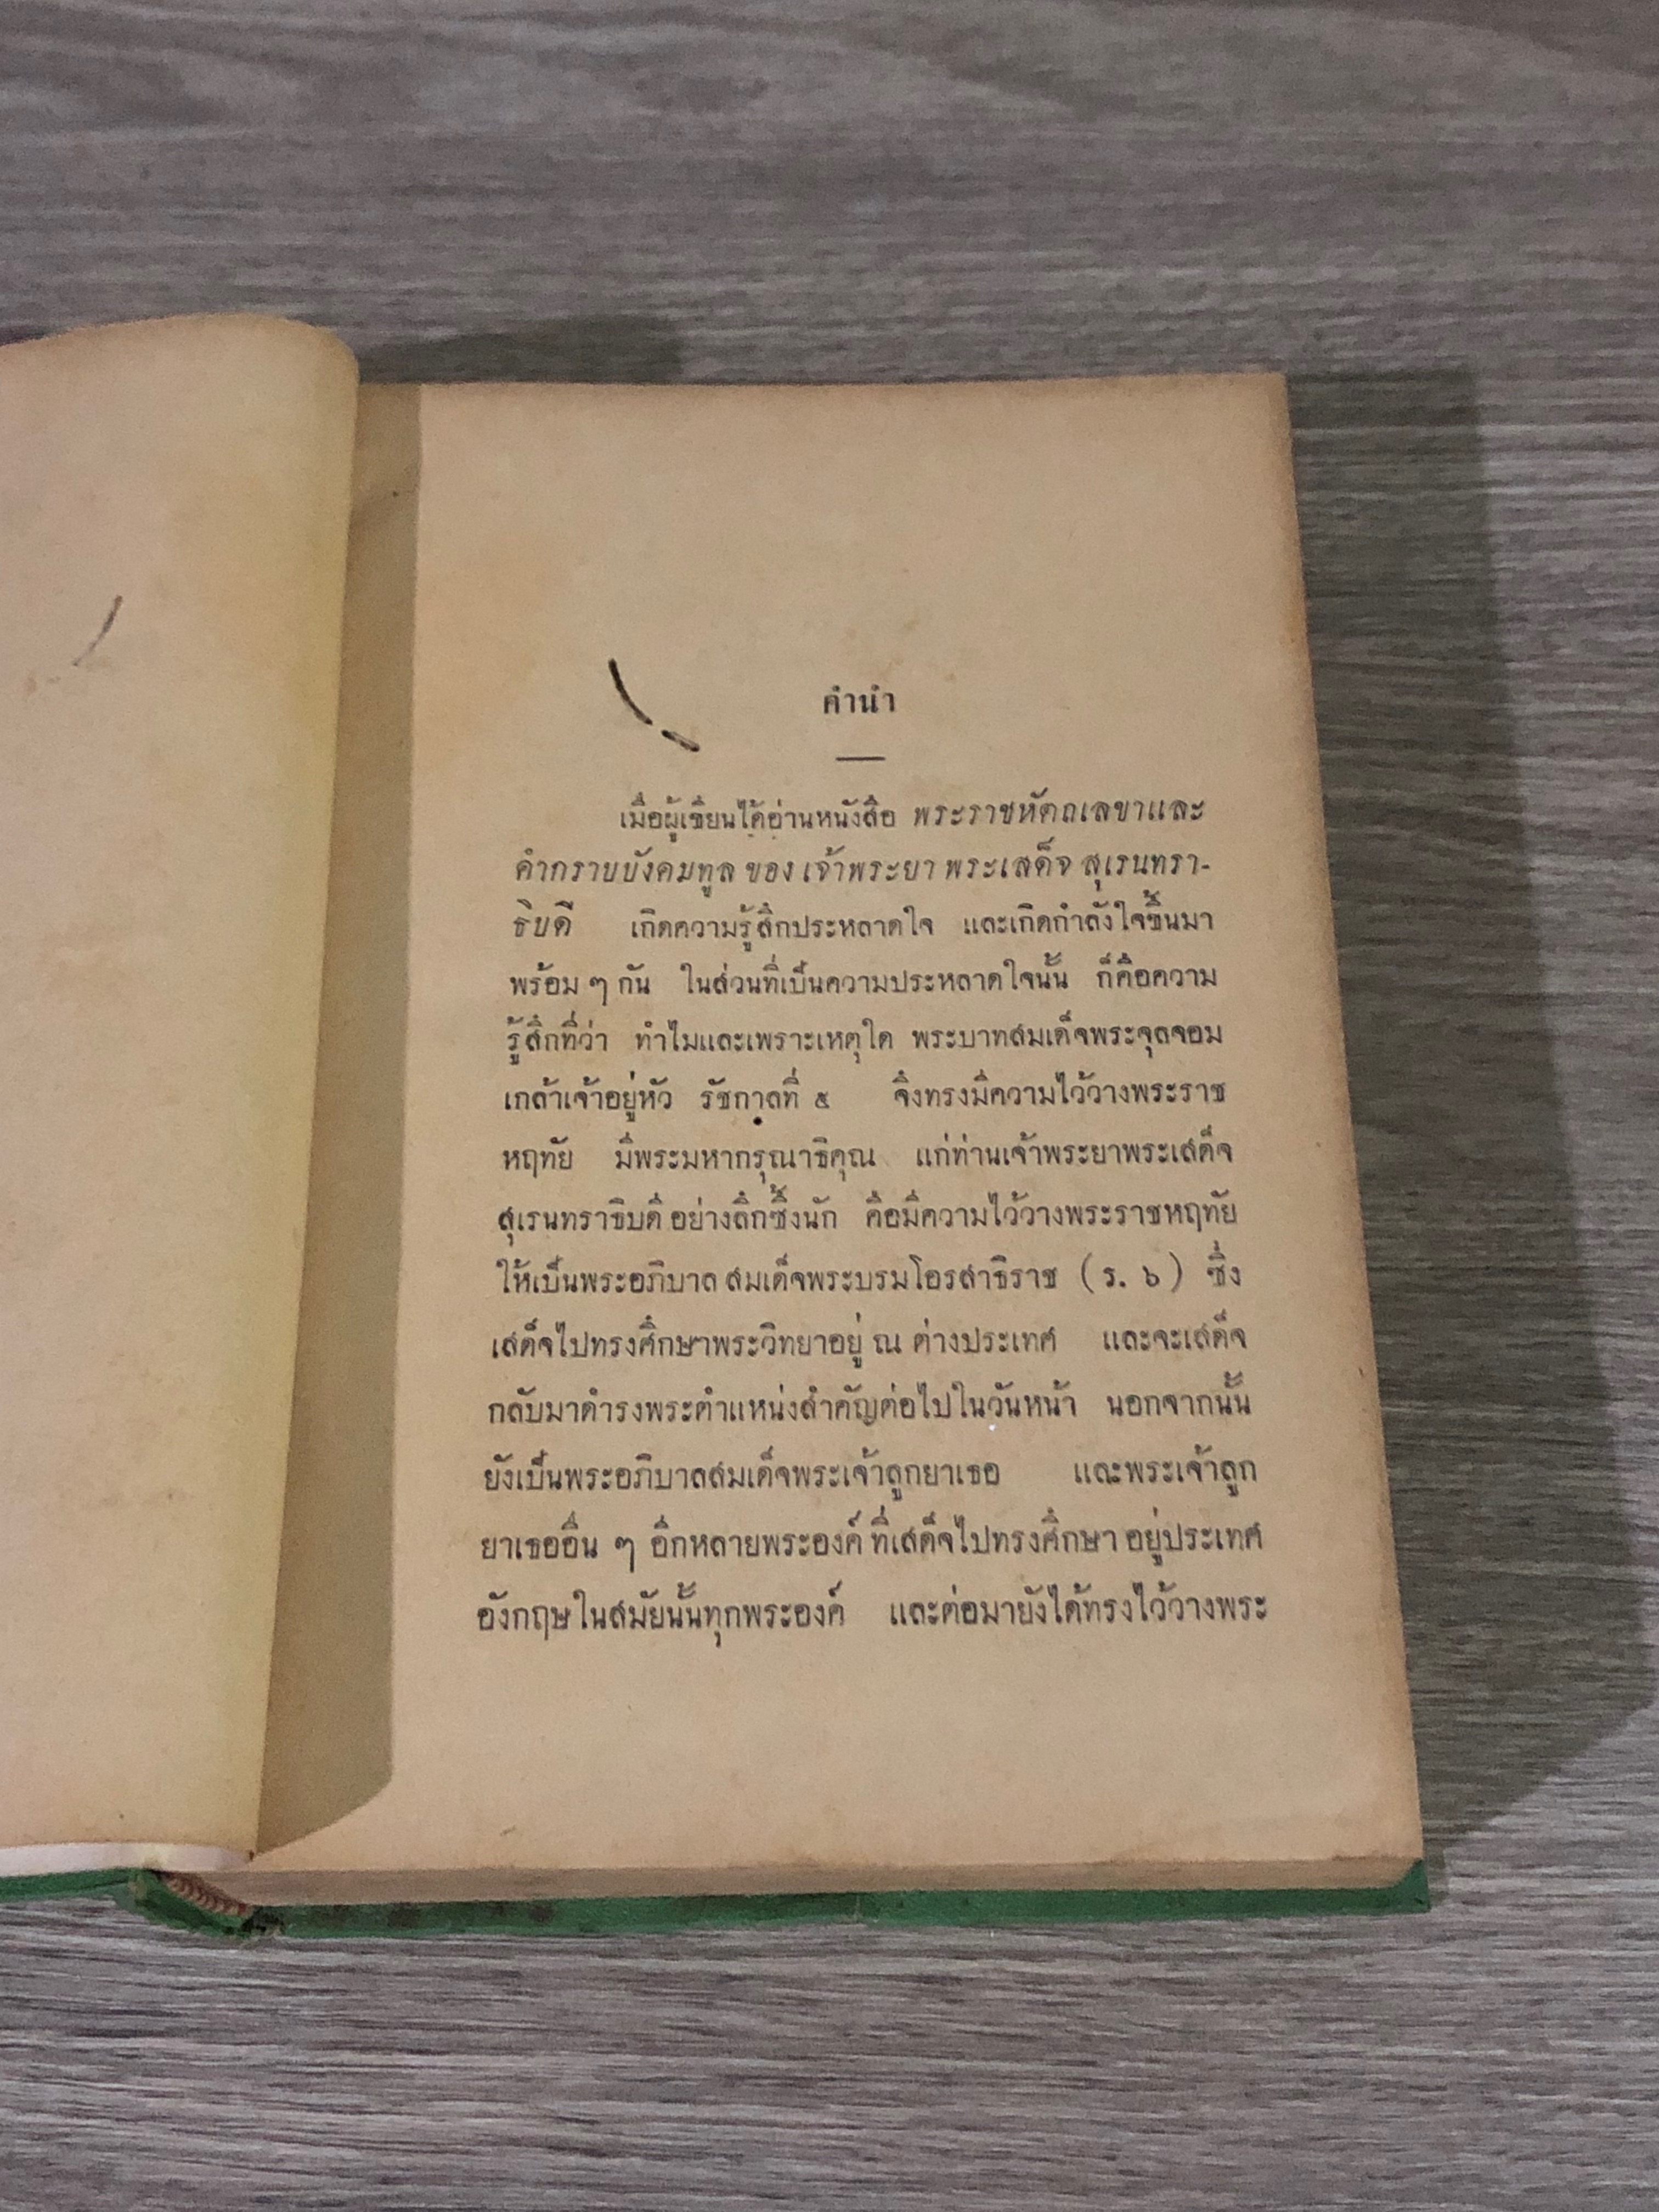 คำนำ
เมื่อผู้เขียนได้อ่านหนังสือ พระราชหัตถเลขาและ
คำกราบบังคมทูล ของ เจ้าพระยา พระเสด็จ สุเรนทรา-
ธิบดี เกิดความรู้สึกประหลาดใจ และเกิดกำลังใจขึ้นมา
พร้อม ๆ กัน ในส่วนที่เป็นความประหลาดใจนั้น ก็คือความ
รู้สึกที่ว่า ทำไมและเพราะเหตุใด พระบาทสมเด็จพระจุลจอม
เกล้าเจ้าอยู่หัว รัชกาลที่ ๕ จึงทรงมีความไว้วางพระราช
หฤทัย มีพระมหากรุณาธิคุณ แก่ท่านเจ้าพระยาพระเสด็จ
สุเรนทราธิบดี อย่างลึกซึ้งนัก คือมีความไว้วางพระราชหฤทัย
ให้เป็นพระอภิบาล สมเด็จพระบรมโอรสาธิราช (ร. ๖) ซึ่ง
เสด็จไปทรงศึกษาพระวิทยาอยู่ ณ ต่างประเทศ และจะเสด็จ
กลับมาดำรงพระตำแหน่งสำคัญต่อไปในวันหน้า นอกจากนั้น
ยังเป็นพระอภิบาลสมเด็จพระเจ้าลูกยาเธอ และพระเจ้าลูก
ยาเธออื่น ๆ อีกหลายพระองค์ ที่เสด็จไปทรงศึกษา อยู่ประเทศ
อังกฤษในสมัยนั้นทุกพระองค์ และต่อมายังได้ทรงไว้วางพระ